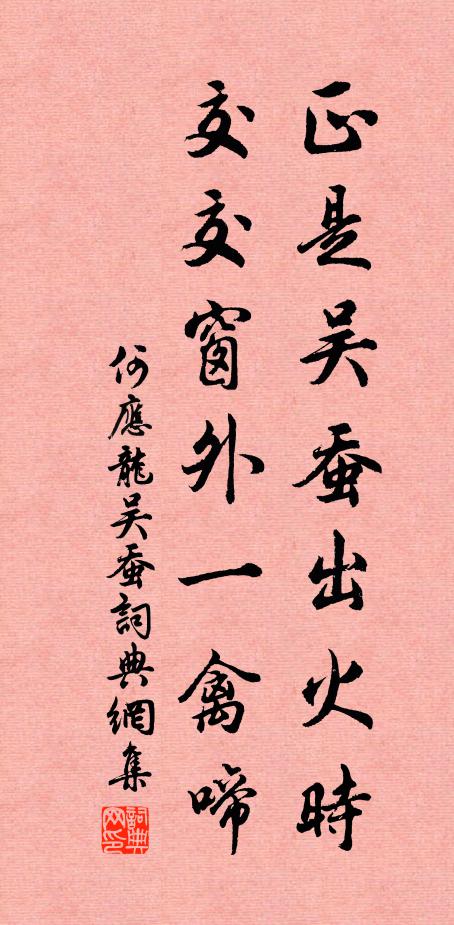 正是吴蚕出火時
交交窗外一禽啼
何應龍吴蚕詞典網集
詞典网印